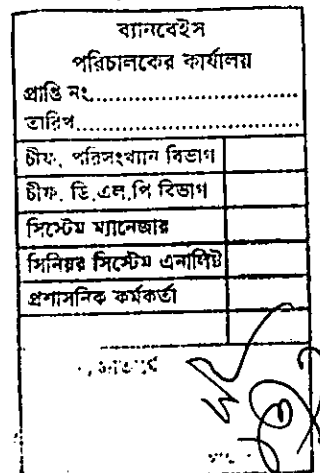 ব্যানবেইস
পরিচালকের কার্যালয়
প্রাপ্তি নং..............................
তারিখ..............................
চীফ, পরিসংখ্যান বিভাগ
চীফ, ডি.এল.পি বিভাগ
সিস্টেম ম্যানেজার
সিনিয়র সিস্টেম এনালিষ্ট
প্রশাসনিক কর্মকর্তা